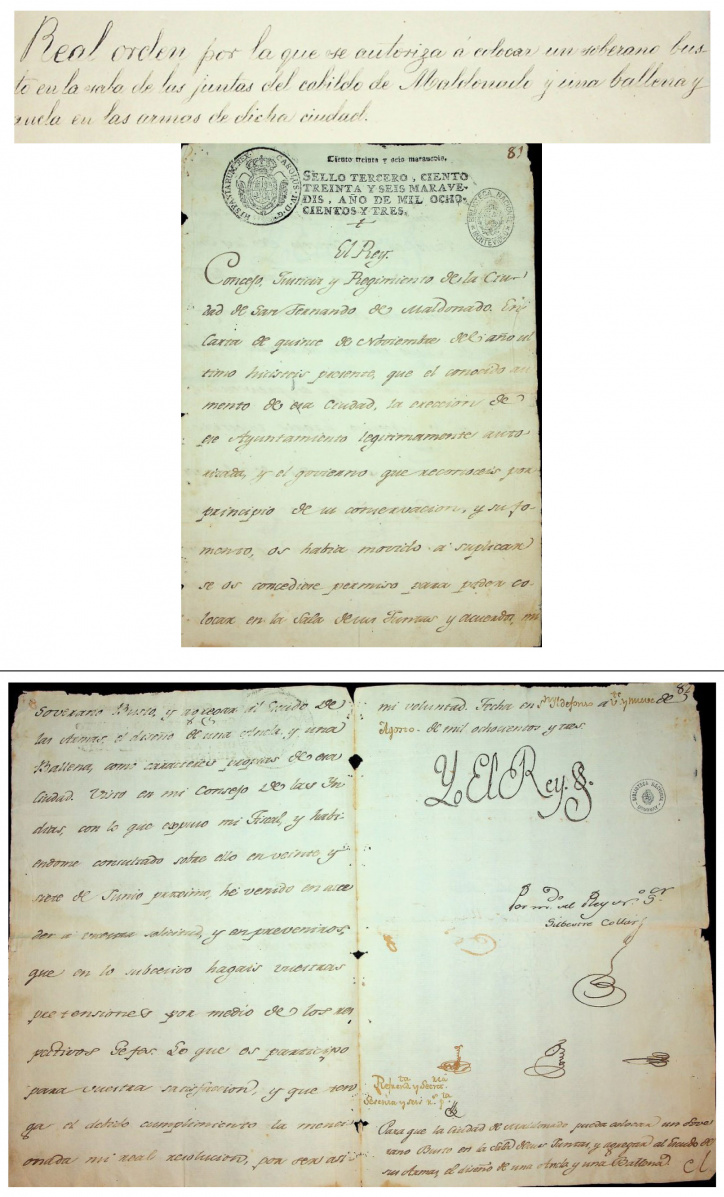 Real orden por la que se autoriza á colocar un soberano bus-
to en la sala de las juntas del cabildo de Maldonado y una ballena y
ancla en las armas de dicha ciudad.
81
Ciento treinta y seis maravedis.
SELLO TERCERO, CIENTO
TREINTA Y SEIS MARAVE-
DIS, AÑO DE MIL OCHO-
CIENTOS Y TRES.
HISPANIARUM REX CAROLUS IV D. G.
BIBLIOTECA NACIONAL
MONTEVIDEO
El Rey.
Concejo, Justicia y Regimiento de la Ciu-
dad de San Fernando de Maldonado. En
Carta de quince de Noviembre del año ul
timo hicisteis presente, que el conocido au
mento de esa Ciudad, la ereccion de
ese Ayuntamiento legitimamente auto
rizada, y el govierno que reconoceis por
principio de su conservacion, y su fo-
mento, os habia movido à suplicar
se os concediese permiso para poder co-
locar en la Sala de sus Juntas y acuerdos, mi
Soverano Busto, y agregar al Escudo de
las Armas, el diseño de una Ancla, y una
Ballena, como caracteres propios de esa
Ciudad. Visto en mi Consejo de las In
dias, con lo que expuso mi Fiscal, y habi-
endome consultado sobre ello en veinte, y
siete de Junio proximo, hé venido en acce
der a vuestra solicitud, y en preveniros,
que en lo subcesivo hagais vuestras
pretensiones por medio de los res
pectivos Gefes. Lo que os participo
para vuestra satisfaccion, y que ten
ga el debido cumplimiento la menci
onada mi real resolucion, por ser asi
82
mi voluntad. Fecha en Sn. Ildefonso a y nueve de
Agosto de mil ochocientos y tres.
Yo El Rey.
BIBLIOTECA NACIONAL
Por mdo. del Rey nro. Sor.
Silbestre Collar
Refrenda y Secret.
Sesenta y seis
Para que la Ciudad de Maldonado pueda colocar un Sove
rano Busto en la Sala de sus Juntas, y agregar al Escudo de
sus Armas, el diseño de una Ancla y una Ballena.